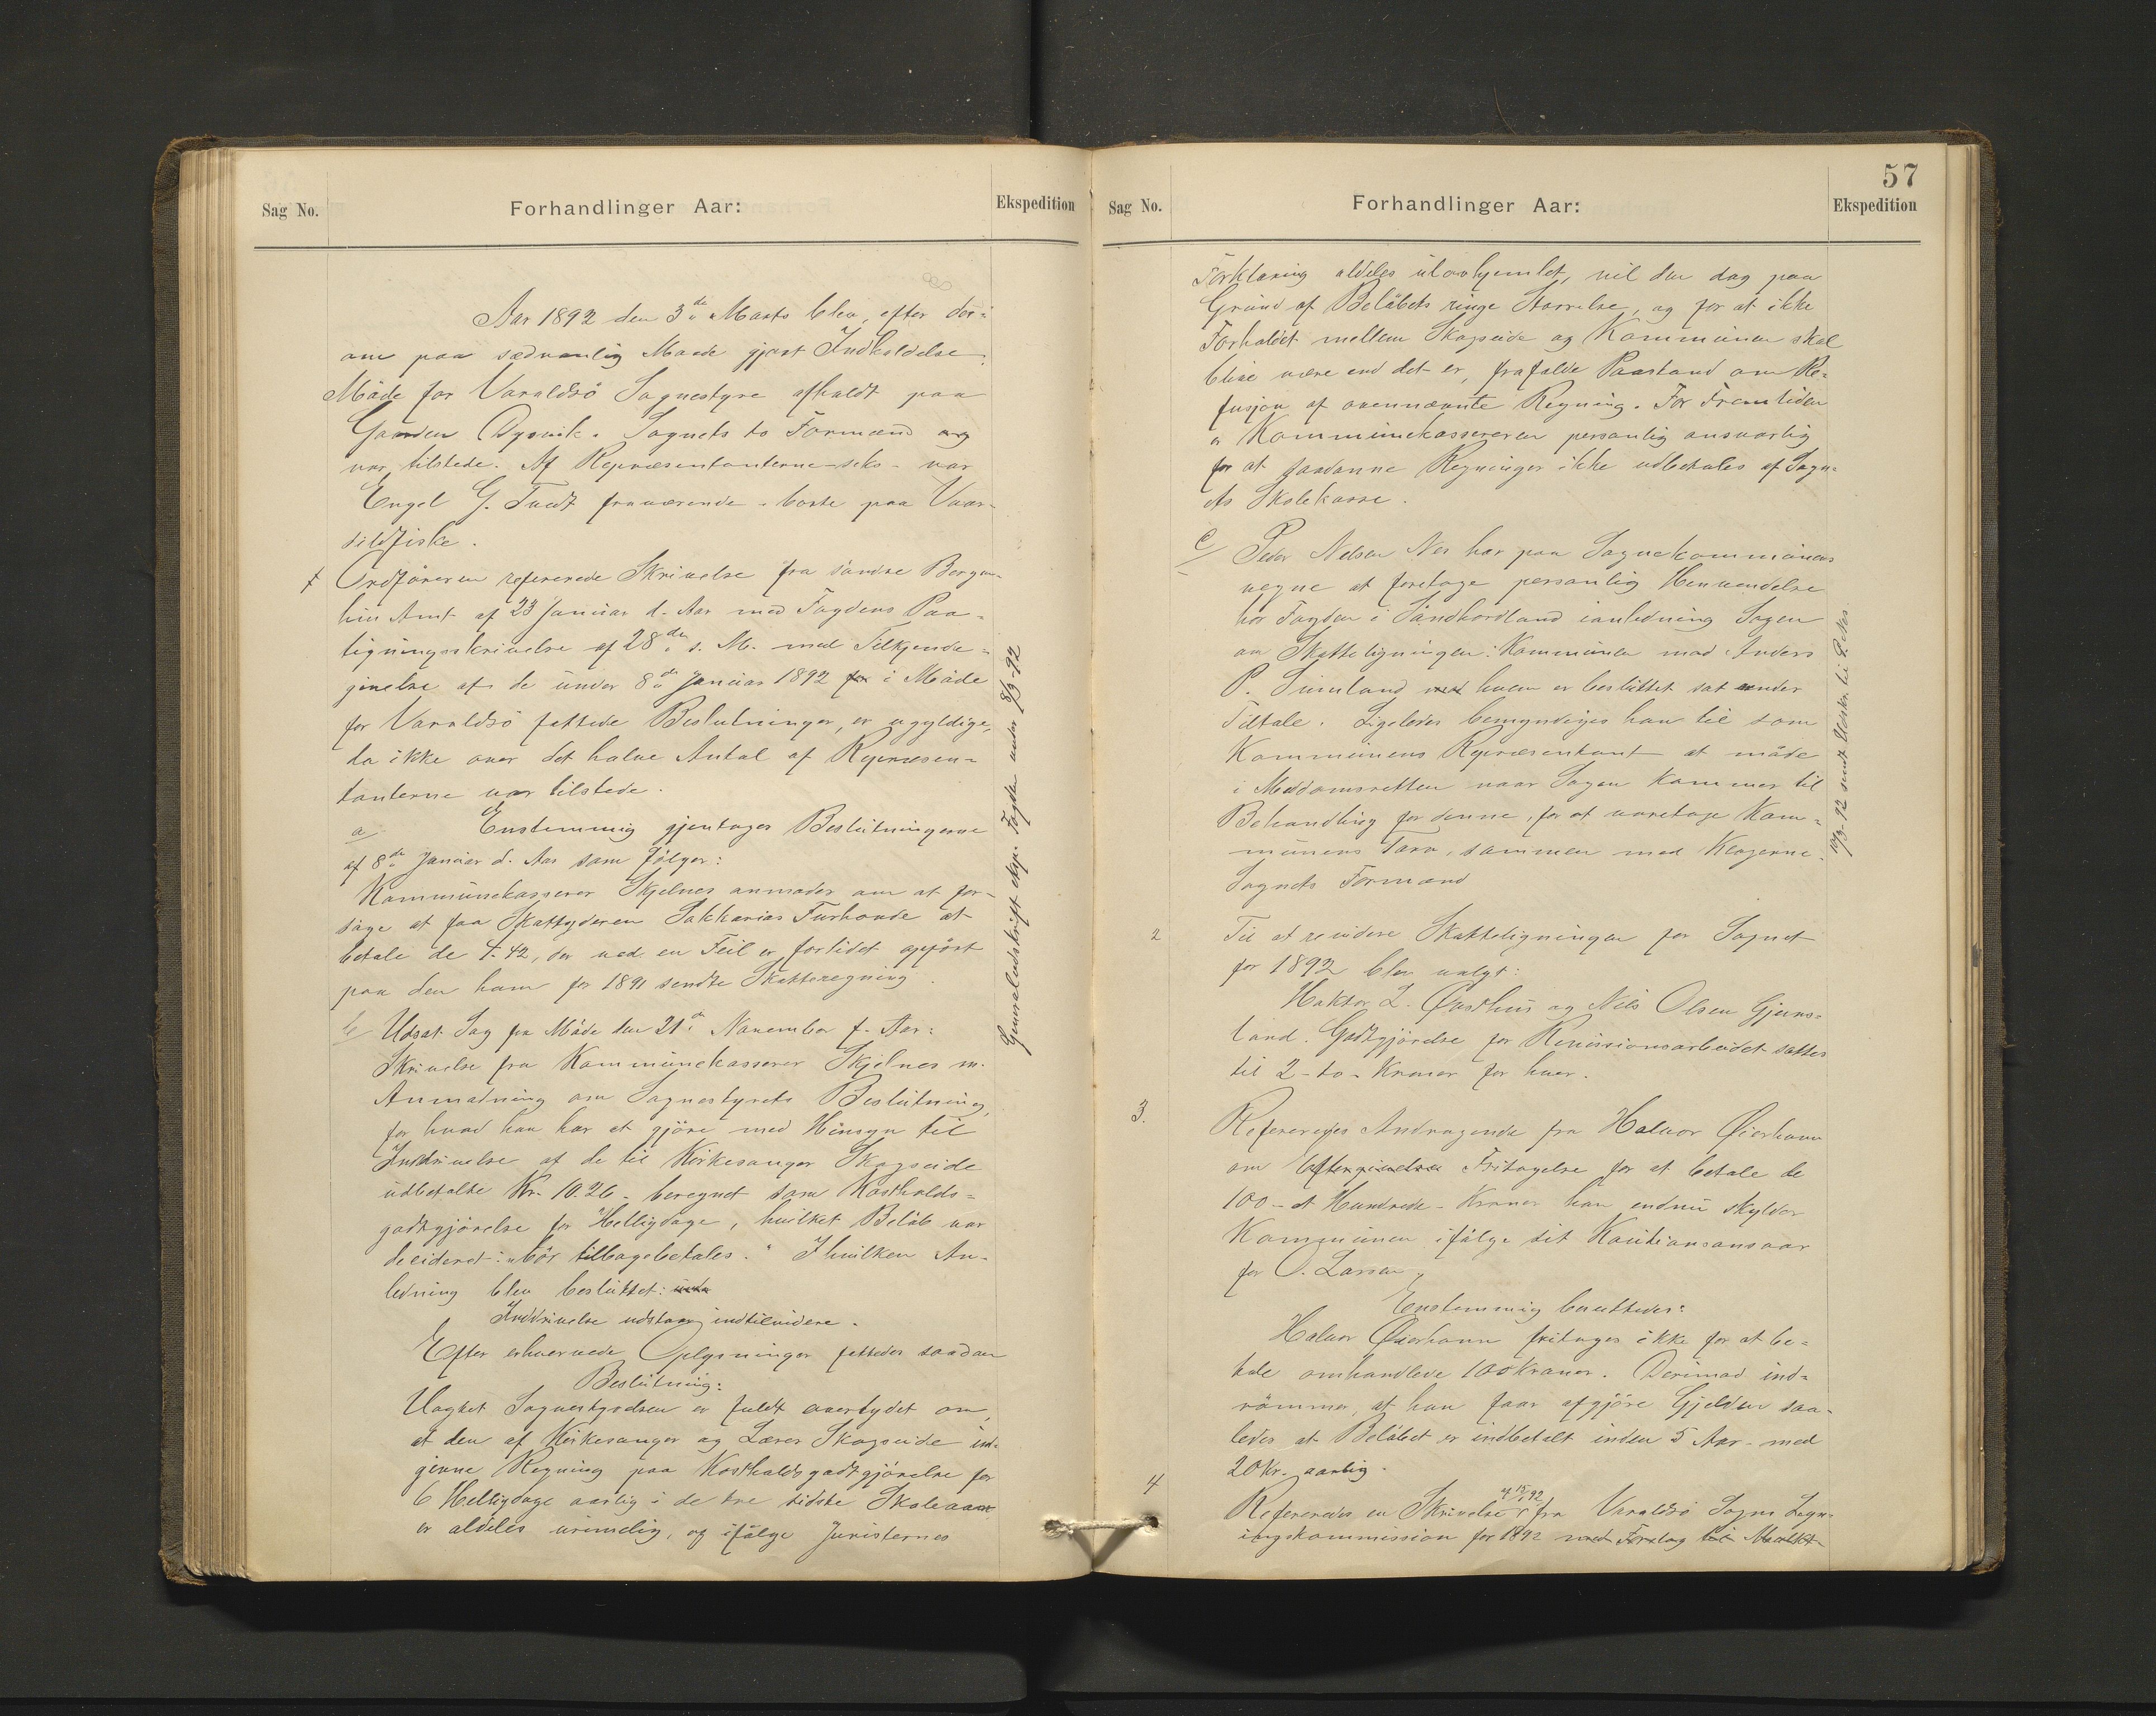 Sag No.
Forhandlinger Aar:
Ekspedition
Aar 1892 den 3de Marts blev, efter der-
om paa sædvanlig Maade gjort Indkaldelse,
Möde for Varaldsö Sognestyre afholdt paa
Gaarden Dysvik. Sognets to Formænd
var tilstede. Af Repræsentanterne - seks - var
Engel G. Tvedt fraværende - borte paa Vaar-
sildfiske.
Ordföreren refererede Skrivelse fra söndre Bergen-
hus Amt af 23 Januar d. Aar med Fogdens Paa-
tegningsskrivelse af 28de s. M. med Tilkjende-
givelse af de under 8de Januar 1892 for i Möde
for Varaldsö fattede Beslutninger, er ugyldige,
da ikke over det halve Antal af Repræsen-
tanterne var tilstede.
a
Enstemmig gjentages Beslutningerne
af 8de Januar d. Aar som fölger:
Kommunekasserer Skjelnes anmodes om at for-
söge at faa Skatteyderen Sakkarias Furhovde at
betale de 4.42, der ved en Feil er forlidet opfört
paa den ham for 1891 sendte Skatteregning.
b
Udsat Sag fra Möde den 21de November f. Aar:
Skrivelse fra Kommunekasserer Skjelnes m.
Anmodning om Sognestyrets Beslutning,
for hvad han har at gjöre med Hensyn til
Inddrivelse af de til Kirkesanger Skogseide
udbetalte Kr. 10.26 - beregnet som Kostholds-
godtgjörelse for Helligdage, hvilket Belöb var
decideret: "bör tilbagebetales." I hvilken An-
ledning blev besluttet:
Inddrivelse udstaar indtilvidere.
Efter erhvervede Oplysninger fattedes saadan
Beslutning:
Uagtet Sognestyrelsen er fuldt overtydet om,
at den af Kirkesanger og Lærer Skogseide ind-
givne Regning paa Kostholdsgodtgjörelse for
6 Helligdage aarlig i de tre sidste Skoleaar
er aldeles urimelig, og ifölge Juristernes
Generaludskrift eksp. Fogden under 8/3-92
57
Sag No.
Forhandlinger Aar:
Ekspedition
Forklaring aldeles ulovhjemlet, vil den dog paa
Grund af Belöbets ringe Störrelse, og for at ikke
Forholdet mellem Skogseide og Kommunen skal
blive være end det er, frafalde Paastand om Re-
fusjon af ovennævnte Regning. For Fremtiden
er Kommunekassereren personlig ansvarlig
for at saadanne Regninger ikke udbetales af Sogn-
ets Skolekasse.
c
Peder Nelsen Nes har paa Sognekommunens
vegne at foretage personlig Henvendelse
hos Fogden i Söndhordland i anledning Sagen
om Skatteligningen: Kommunen mod Anders
P. Sunnland hvem er besluttet sat under
Tiltale. Ligeledes bemyndiges han til som
Kommunens Repræsentant at möde
i Meddomsretten naar Sagen kommer til
Behandling for denne, for at varetage Kom-
munens Tarv, sammen med Klagerne,
Sognets Formænd
10/3-92 sendt Udskr. til P. Nes.
2
Til at revidere Skatteligningen for Sognet
for 1892 blev valgt:
Haktor L. Østhus og Nils Olsen Gjerns-
land. Godtgjörelse for Revisionsarbeidet sattes
til 2 - to - Kroner for hver.
3.
Refereredes Andragende fra Halvor Øierhavn
om Eftergivelse Fritagelse for at betale de
100 - et Hundrede - Kroner han endnu skylder
Kommunen ifölge sit Kautionsansvar
for O. Larsen,
Enstemmig besluttedes:
Halvor Øierhavn fritages ikke for at be-
tale omhandlede 100 Kroner. Derimod ind-
römmes, at han faar afgjöre Gjelden saa-
ledes at Belöbet er indbetalt inden 5 Aar - med
20 Kr. aarlig.
4
Refereredes en Skrivelse fra Varaldsö Sogns Lign-
ingskommission for 1892 med Forslag til